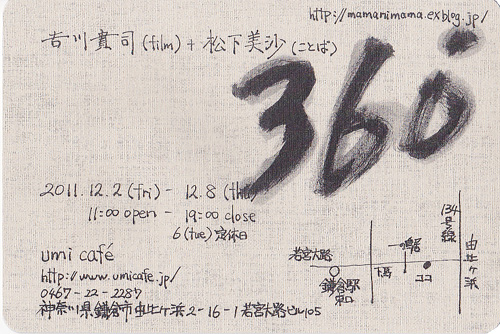 http://mamanimama.exblog.jp/
吉川貴司(film)+松下美沙(ことば)
360°
2011.12.2(fri)- 12.8(thu)
11:00 open - 19:00 close
6(tue)定休日
umi café
http://www.umicafe.jp/
0467-22-2287
神奈川県鎌倉市由比ヶ浜2-16-1若宮大路ビル105
若宮大路
鎌倉駅
一ノ鳥居
ココ
134号線
由比ヶ浜